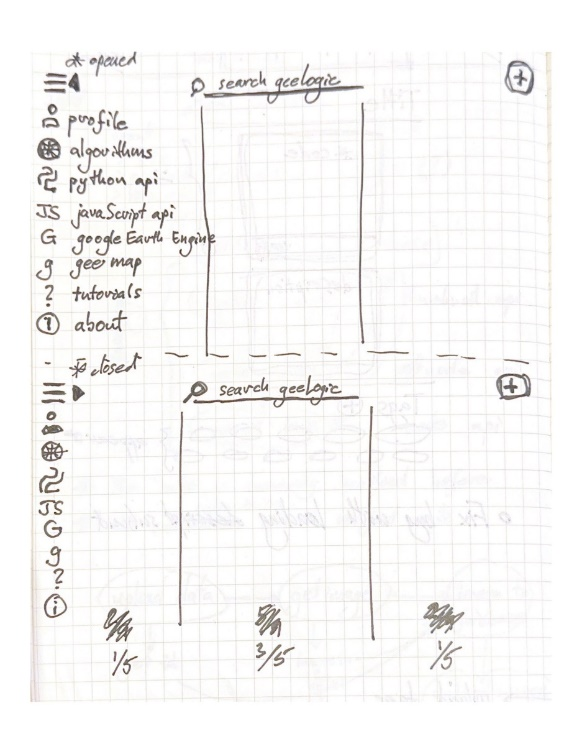 * opened
search geelogic
+
profile
algorithms
python api
JS javaScript api
G google Earth Engine
g gee map
? tutorials
i about
* closed
search geelogic
+
JS
G
g
?
i
1/5 3/5 1/5